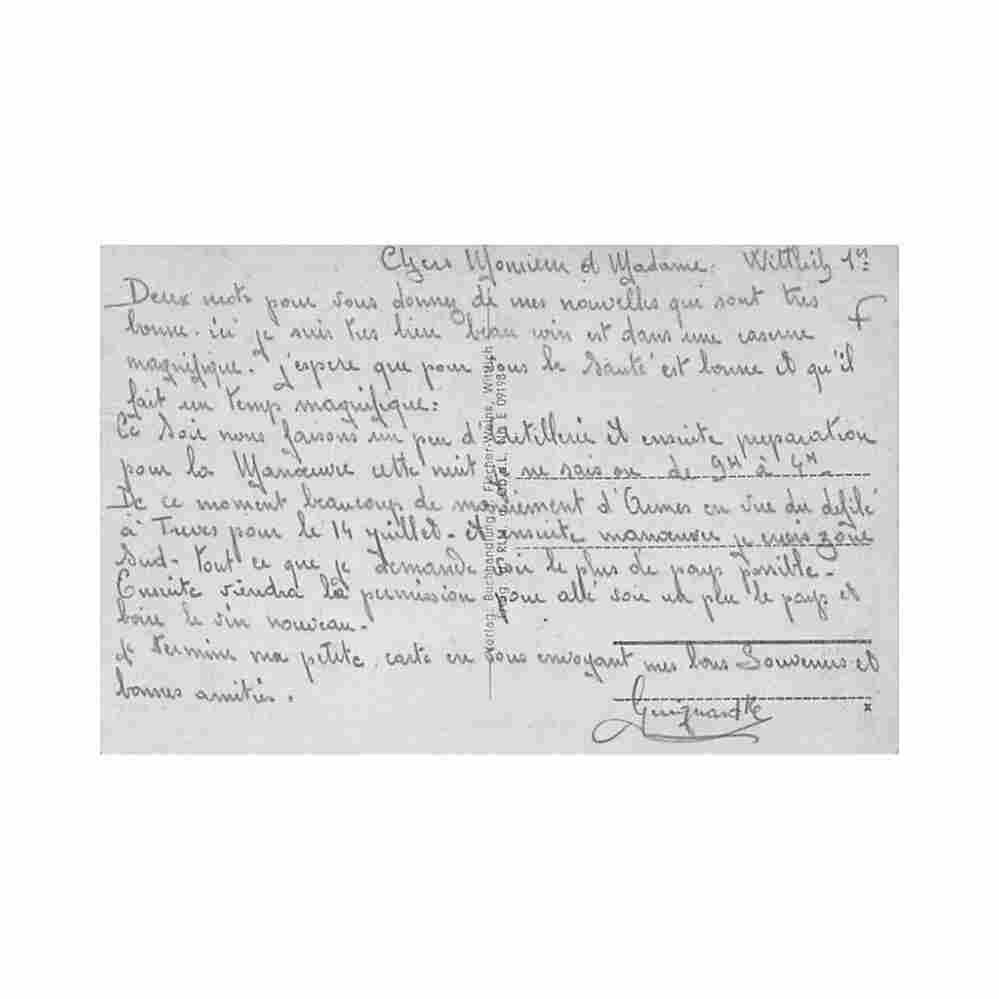 Chers Monsieur et Madame. Wittlich 1er
Deux mots pour vous donner de mes nouvelles qui sont très
bonne. ici je suis très bien beau coin est dans une caserne
magnifique. J'espere que pour vous la Santé est bonne et qu'il
fait un temps magnifique:
Ce Soir nous faisons un peu d'artillerie et ensuite preparation
pour la Manœuvre cette nuit je ne sais ou de 9H à 4H
De ce moment beaucoup de maniement d'Armes en vue du defilé
à Treves pour le 14 juillet. et ensuite manœuvre je crois zône
Sud. tout ce que je demande voir le plus de pays possible.
Ensuite viendra la permission pour allé voir un peu le pays et
boire le vin nouveau.
Je termine ma petite carte en vous envoyant mes bons Souvenirs et
bonnes amitiés.
Verlag: Buchhandlung J. Fischer-Weins, Wittlich